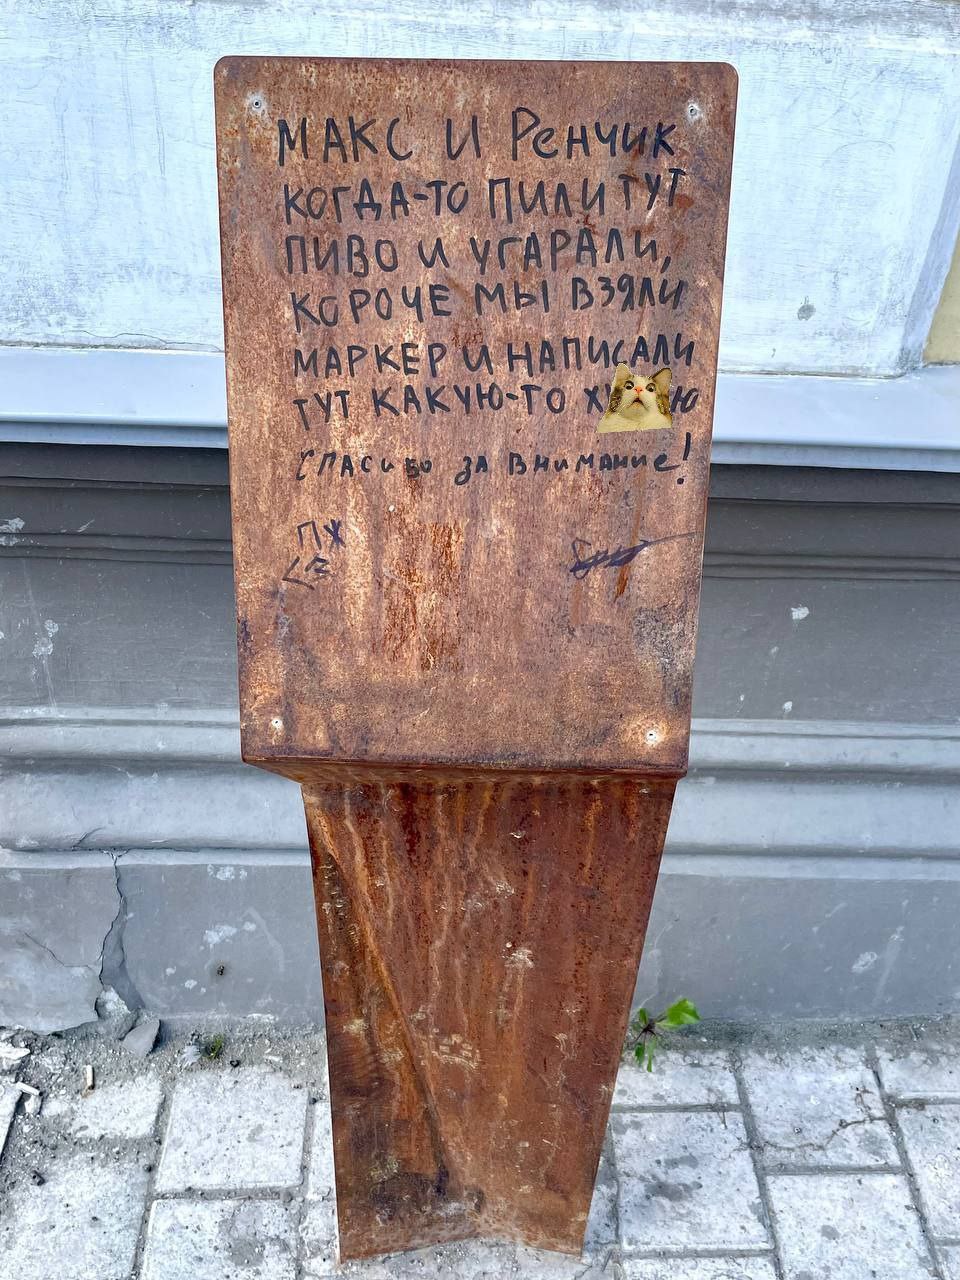 МАКС И РЕНЧИК
КОГДА-ТО ПИЛИ ТУТ
ПИВО И УГАРАЛИ,
КОРОЧЕ МЫ ВЗЯЛИ
МАРКЕР И НАПИСАЛИ
ТУТ КАКУЮ-ТО
СПАСИБО ЗА ВНИМАНИЕ!
ПЖ